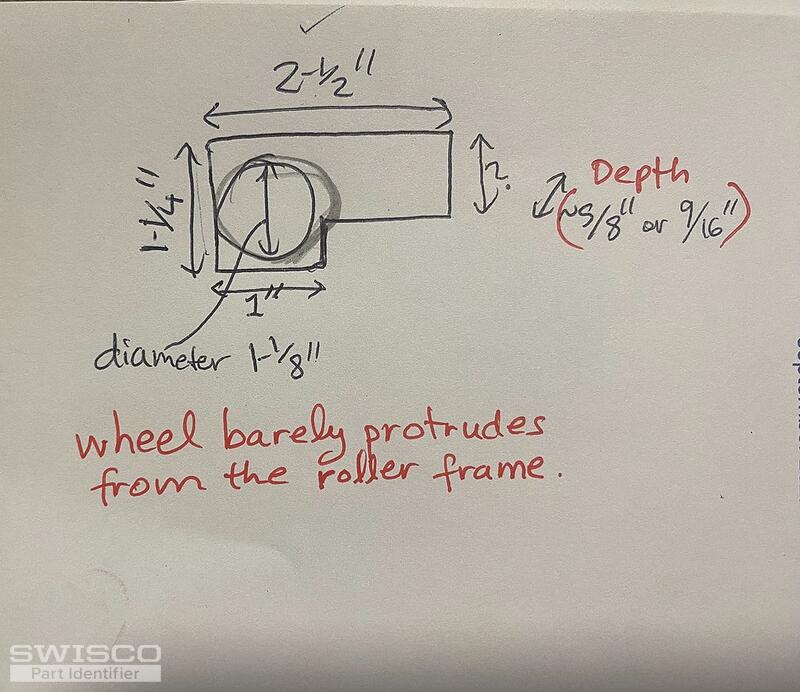 2-1/2"
1-1/4"
?
Depth
(~5/8" or 9/16")
1"
diameter 1-1/8"
wheel barely protrudes
from the roller frame.
SWISCO
Part Identifier